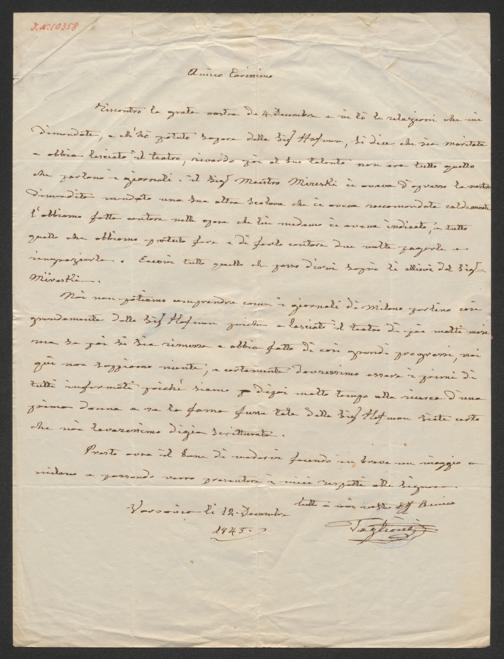 J.N. 10358
Amico Carissimo
Riscontro la grata vostra de 4 Decembre e vi fo le relazioni che mi
dimandate, e ch'ho potuto sapere della Sigra Hofman, si dice che sia maritata
e abbia lasciato il teatro, riguardo poi al suo talento non era tutto quello
che parlano i giornali. il Sigr Maestro Mireski ci aveva d'appresso la vostra
dimandato mandato una sua altra Scolara che ci aveva raccomandata caldamente
l'abbiamo fatta cantare nelle opere che lui medemo ci aveva indicato, in tutto
quello che abbiamo potuto fare e di farla cantare due volte pagarla e
ringraziarla. Eccovi tutto quello che posso dirvi sopra li allievi del Sigr
Mireski.
Noi non potiamo comprendere come i giornali di Milano parlino così
grandamente della Sigra Hofman poichè a lasciato il teatro di più molti mesi
ma se poi si sia rimessa e abbia fatto di così grandi progressi, noi
qui non sappiamo niente, e certamente dovressimo essere i primi di
tutti informati poichè siamo di già molto tempo alla ricerca d'una
prima donna e se la fama fusse tale della Sigra Hofman siate certo
che noi l'averessimo digià scritturata.
Presto avrò il bene di vedervi facendo in breve un viaggio a
Milano e passando verrò presentare i miei rispetti alla Signora
tutto a voi vostro aff Amico
Varsavia li 12 Decembre
1845.
Taglioni